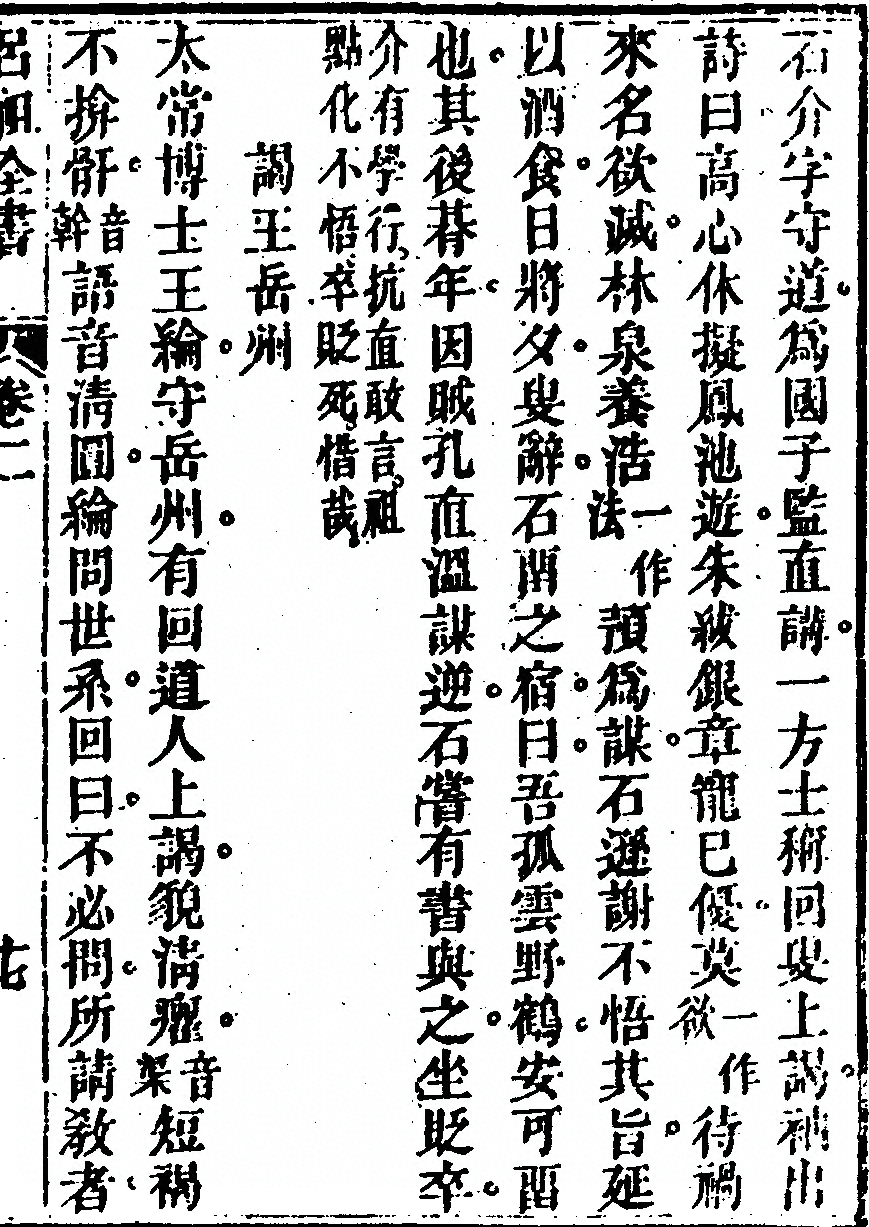 石介字守道為國子監直講一方士稱回叟上謁袖出
詩曰高心休擬鳳池遊朱紱銀章寵已優莫一作欲待禍
來名欲滅林泉養浩一作法預為謀石遜謝不悟其旨延
以酒食日將夕叟辭石畱之宿曰吾孤雲野鶴安可畱
也其後朞年因賊孔直溫謀逆石嘗有書與之坐貶卒
介有學行抗直敢言祖
點化不悟卒貶死惜哉
謁王岳州
太常博士王綸守岳州有回道人上謁貌淸癯音渠短褐
不揜骭音幹語音淸圓綸問世系回曰不必問所請敎者
呂祖全書 卷二 十七